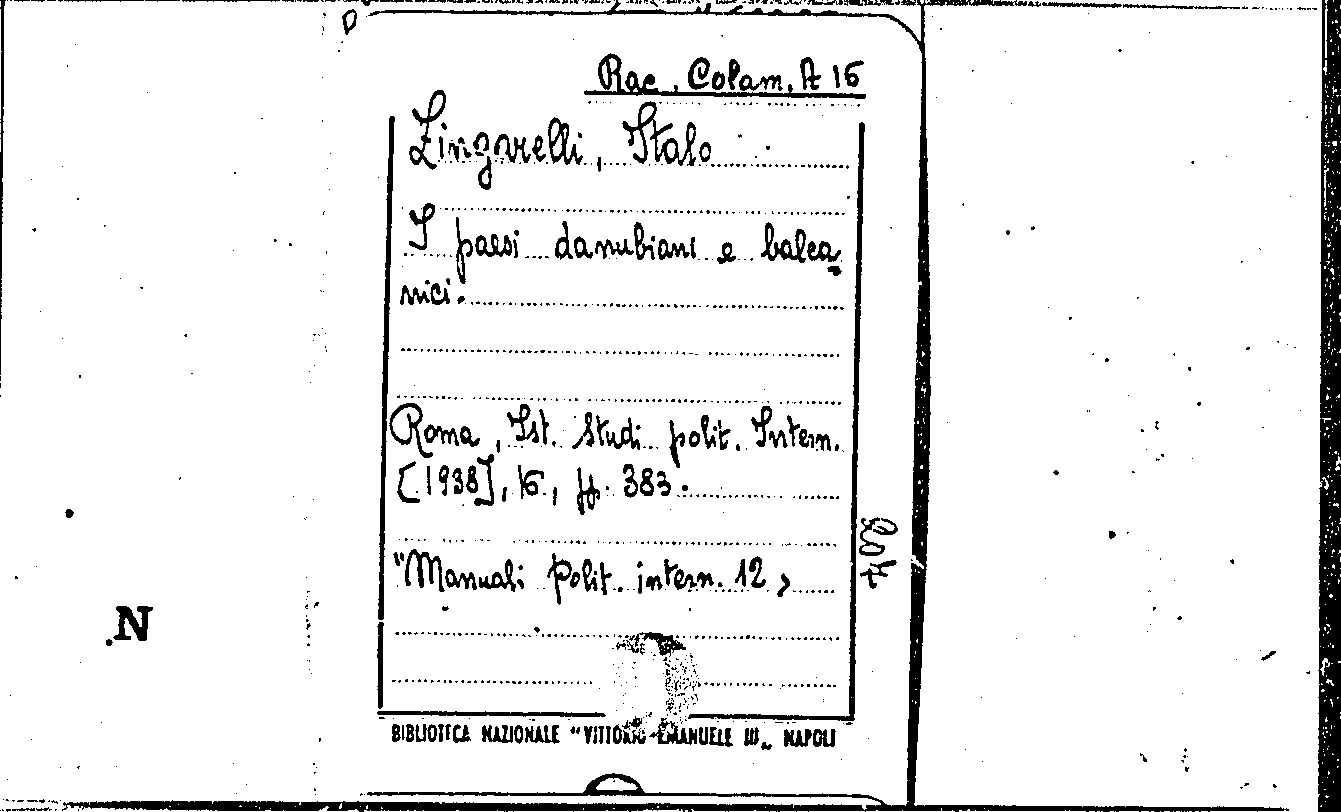 Rac. Colam. A 16
Zingarelli, Italo
I paesi danubiani e balca-
nici.
Roma, Ist. Studi polit. Intern.
[1938], 16, pp. 383.
"Manuali Polit. intern. 12 >
N
BIBLIOTECA NAZIONALE "VITTORIO EMANUELE III„ NAPOLI